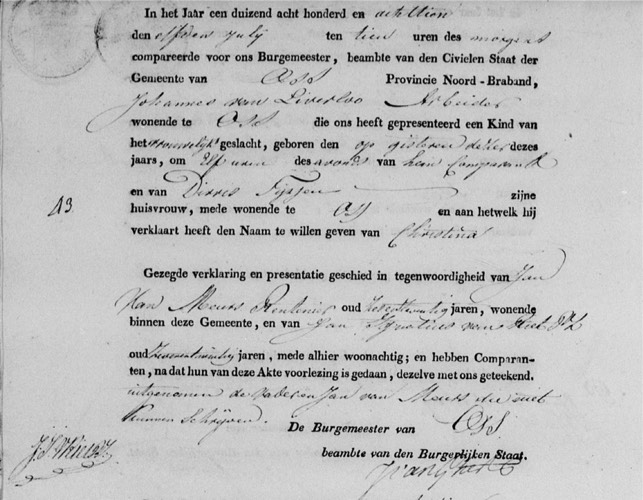 In het Jaar een duizend acht honderd en achttien
den elfden July ten tien uren des morgens
compareerde voor ons Burgemeester, beambte van den Civielen Staat der
Gemeente van Oss Provincie Noord-Braband,
Johannes van Liverloo Arbeider
wonende te Oss die ons heeft gepresenteerd een Kind van
het vrouwelijk geslacht, geboren den op gisteren dezer dezes
jaars, om Elf uren des avonds van hem Comparant
en van Dirres zijne
huisvrouw, mede wonende te Oss en aan hetwelk hij
verklaart heeft den Naam te willen geven van Christina
43.
Gezegde verklaring en presentatie geschied in tegenwoordigheid van Jan
Van Meurs Rentenier oud jaren, wonende
binnen deze Gemeente, en van Jan Ignatius van
oud jaren, mede alhier woonachtig; en hebben Comparan-
ten, na dat hun van deze Akte voorlezing is gedaan, dezelve met ons geteekend.
uitgenomen de vader en Jan van Meurs die niet
kunnen Schrijven.
De Burgemeester van Oss
beambte van den Burgerlijken Staat.